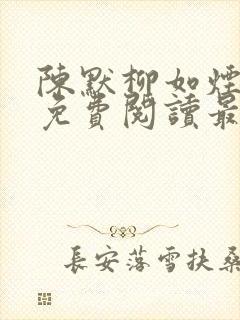 陳默柳如煙
免費閱讀最
長安落雪扶桑